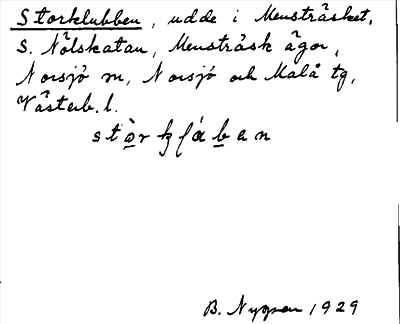 Storklubben, udde i Mensträsket,
S. Nölskatan, Mensträsk ägor,
Norsjö m, Norsjö och Malå tg,
Västerb. l.
B. Nygren 1929